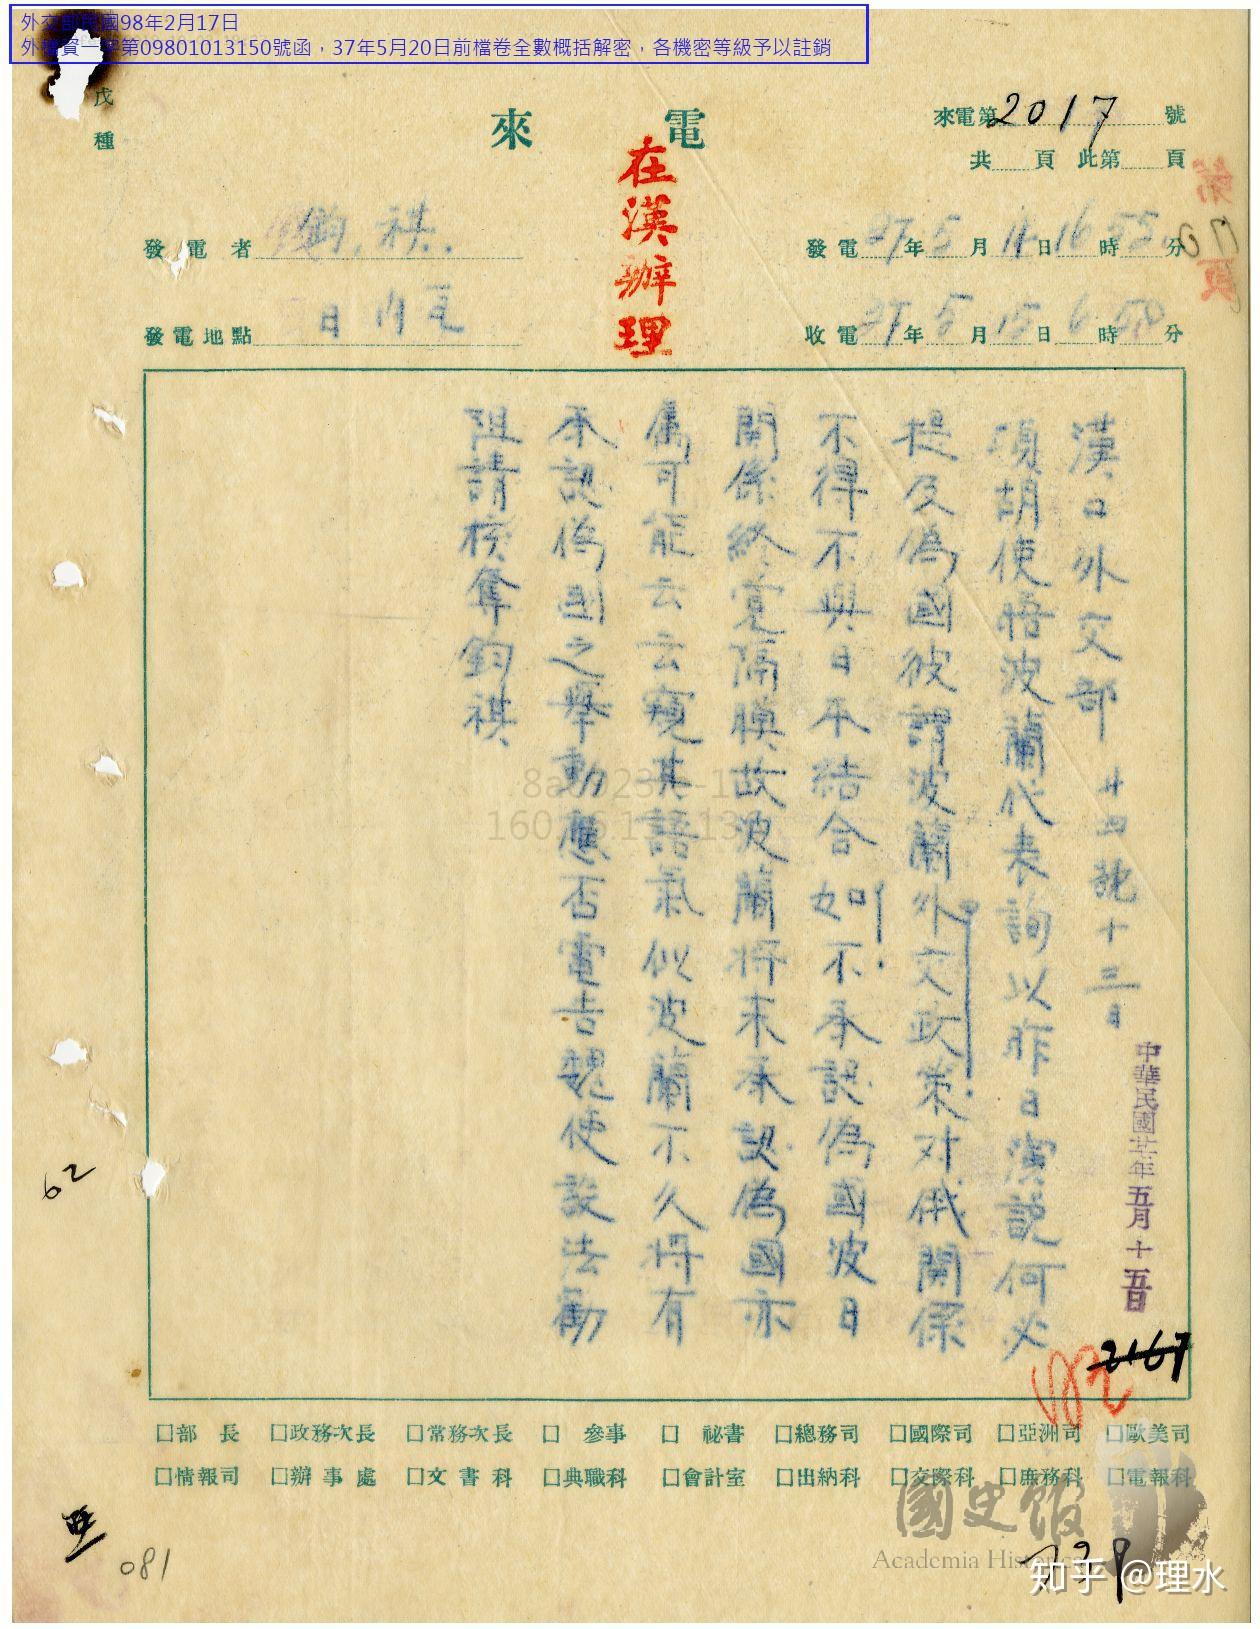 外交部民國98年2月17日
外 資一字第09801013150號函，37年5月20日前檔卷全數概括解密，各機密等級予以註銷
戊種
來電
在漢辦理
來電第2017號
共 頁 此第 頁
發電者 鈞.祺.
發電地點 日內瓦
發電27年5月14日16時55分
收電27年5月15日6時50分
漢口外交部 廿四號十三日
頃胡使悟波蘭代表詢以昨日演說何必
提及偽國彼謂波蘭外交政策对俄關係
不得不與日本結合如不承認偽國波日
關係終覺隔膜故波蘭將來承認偽國亦
屬可能云云窺其語氣似波蘭不久將有
承認偽國之舉動應否電告魏使設法勸
阻請核奪鈞祺
中華民國廿七年五月十五日
2167
□部長 □政務次長 □常務次長 □參事 □祕書 □總務司 □國際司 □亞洲司 □歐美司
□情報司 □辦事處 □文書科 □典職科 □會計室 □出納科 □交際科 □庶務科 □電報科
62
081
國史館
Academia Historica
739
知乎 @理水